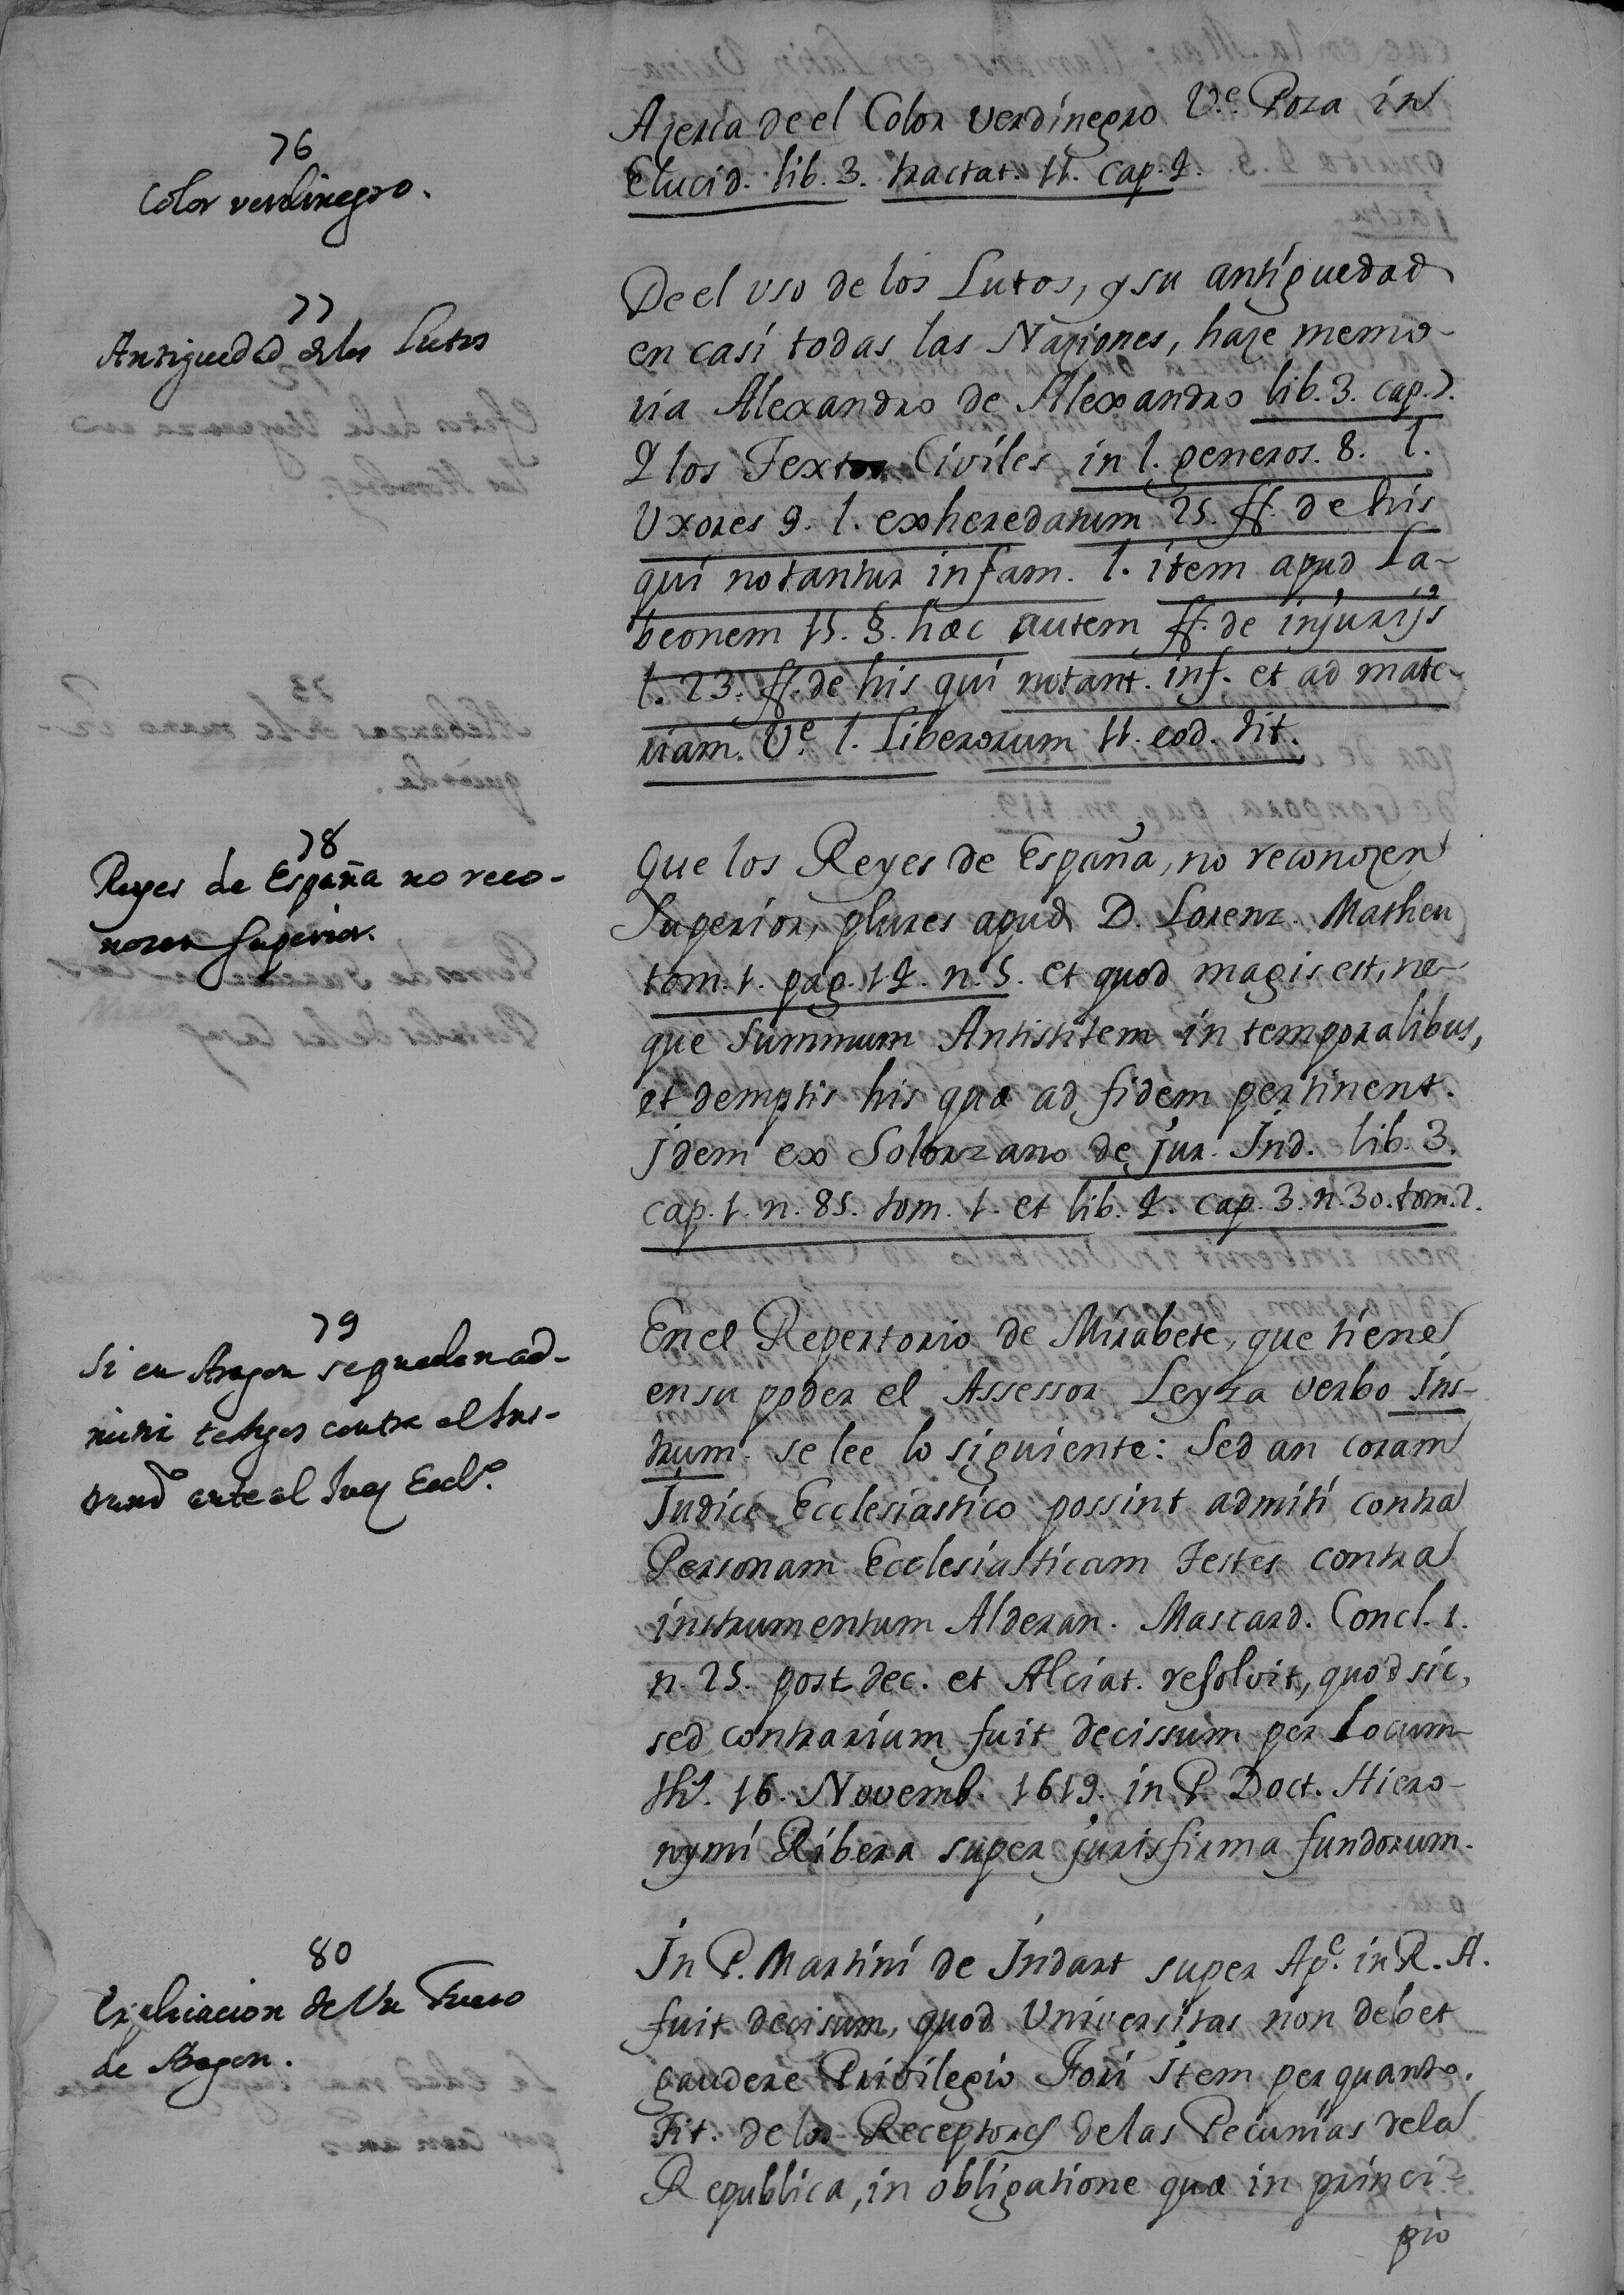 76
Color verdinegro.
Azerca de el Color verdinegro V.e Poza in
Elucid. lib. 3. tractat. 11. cap. 4.
77
Antiguedad de los Lutos
De el uso de los Lutos, y su antiguedad
en casi todas las Naziones, haze memo-
ria Alexandro de Alexandro lib. 3. cap. 7.
& los Textos Civiles in l. generos. 8. l.
Uxores 9. l. exheredatum 25. ff. de his
qui notantur infam. l. item apud La-
beonem 15. §. hæc autem ff. de injurijs
l. 23. ff. de his qui notant. inf. et ad mate-
riam. V.e l. Liberorum 11. eod. tit.
78
Reyes de España no reco-
nozen superior.
Que los Reyes de España, no reconozen
Superior, plures apud D. Lorenz. Matheu
tom. 1. pag. 14. n. 5. et quod magis est, ne-
que Summum Antistitem in temporalibus,
et demptis his quæ ad fidem pertinent.
Jdem ex Solorzano de jur. Ind. lib. 3.
cap. 1. n. 85. tom. 1. et lib. 4. cap. 3. n. 30. tom. 2.
79
Si en Aragon se pueden ad-
mitir testigos contra el Ins-
trum.to ante el Juez Eccl.o
En el Repertorio de Mirabete, que tiene
en su poder el Assessor Leyza verbo Ins-
trum. se lee lo siguiente: Sed an coram
Judice Ecclesiastico possint admiti contra
Personam Ecclesiasticam Testes contra
instrumentum Alderan. Mascard. Concl. 1.
n. 25. post dec. et Alciat. resolvit, quod sic,
sed contrarium fuit decissum per Locum-
16. Novemb. 1619. in P. Doct. Hiero-
nymi Ribera super jurisfirma fundorum.
80
Explicacion de Un Fuero
de Aragon.
In P. Martini de Indart super Ap.e in R. A.
fuit decisum, quod Universitas non debet
gaudere Privilegio Fori Item per quanto.
Tit. de los Receptores de las Pecunias de la
Republica, in obligatione quæ in princi-
pio